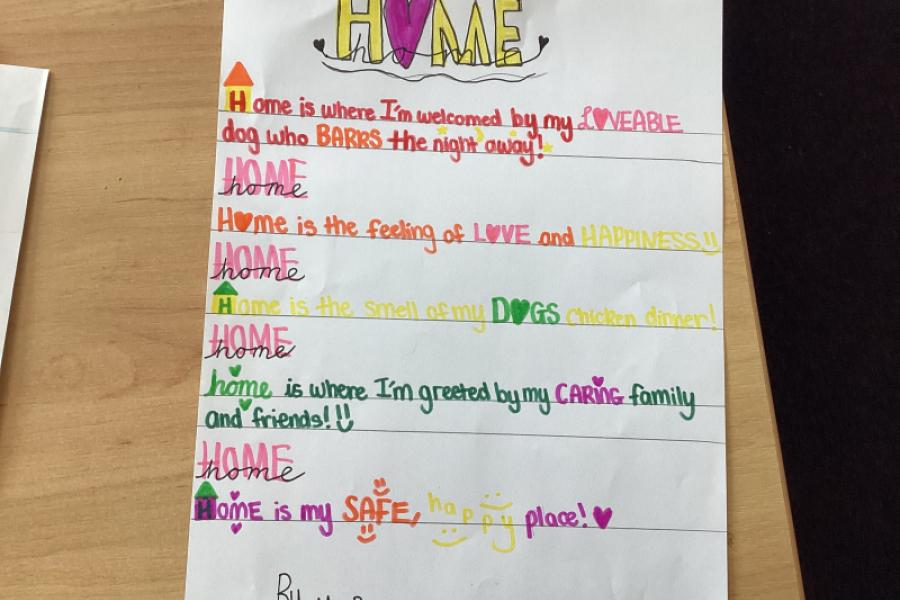 HOME
home
Home is where I'm welcomed by my LOVEABLE
dog who BARRS the night away!
HOME
home
Home is the feeling of LOVE and HAPPINESS!!
HOME
home
Home is the smell of my DOGS chicken dinner!
HOME
home
home is where I'm greeted by my CARING family
and friends!!
HOME
home
HOME is my SAFE, happy place!
By